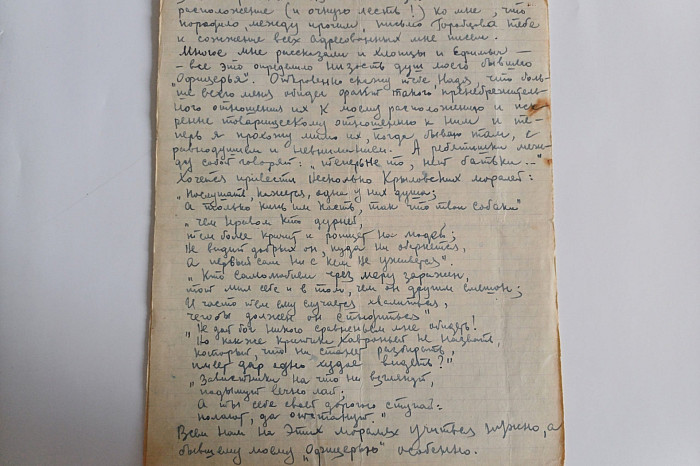 расположение (и очную лесть!) ко мне, что
породило, между прочим, письмо тебе
и сожжение всех адресованных мне писем.
Многое мне рассказали и хлопцы и
— все это определило низость душ моего бывшего
„Офицерья". Откровенно скажу тебе Надя, что боль-
ше всего меня обидел факт такого пренебрежитель-
ного отношения их к моему расположению и иск-
ренне товарищескому отношению к ним и те-
перь я прохожу мимо их, когда бываю там, с
равнодушием и невниманием. А ребятишки меж-
ду собой говорят: „теперь не то, нет батьки..."
Хочется привести несколько Крыловских моралей:
„Послушать, кажется, одна у них душа;
А только кинь им кость, так что твои собаки"
„Чем нравом кто дурней,
тем более кричит и ропщет на людей;
Не видит добрых он, куда ни обернется,
А первый сам ни с кем не уживется".
„Кто самолюбием чрез меру заражен,
тот мил себе и в том, чем он другим смешон;
И часто тем ему случается хвалиться,
чего бы должен он стыдиться"
„Не дай бог никого сравненьем мне обидеть!
Но как же критика Хавроньей не назвать,
который, что ни станет разбирать,
имеет дар одно худое видеть?"
„Завистники на что ни взглянут,
подымут вечно лай;
А ты себе своей дорогою ступай:
полают, да отстанут."
Всем нам на этих моралях учиться нужно, а
бывшему моему „Офицерью" особенно.